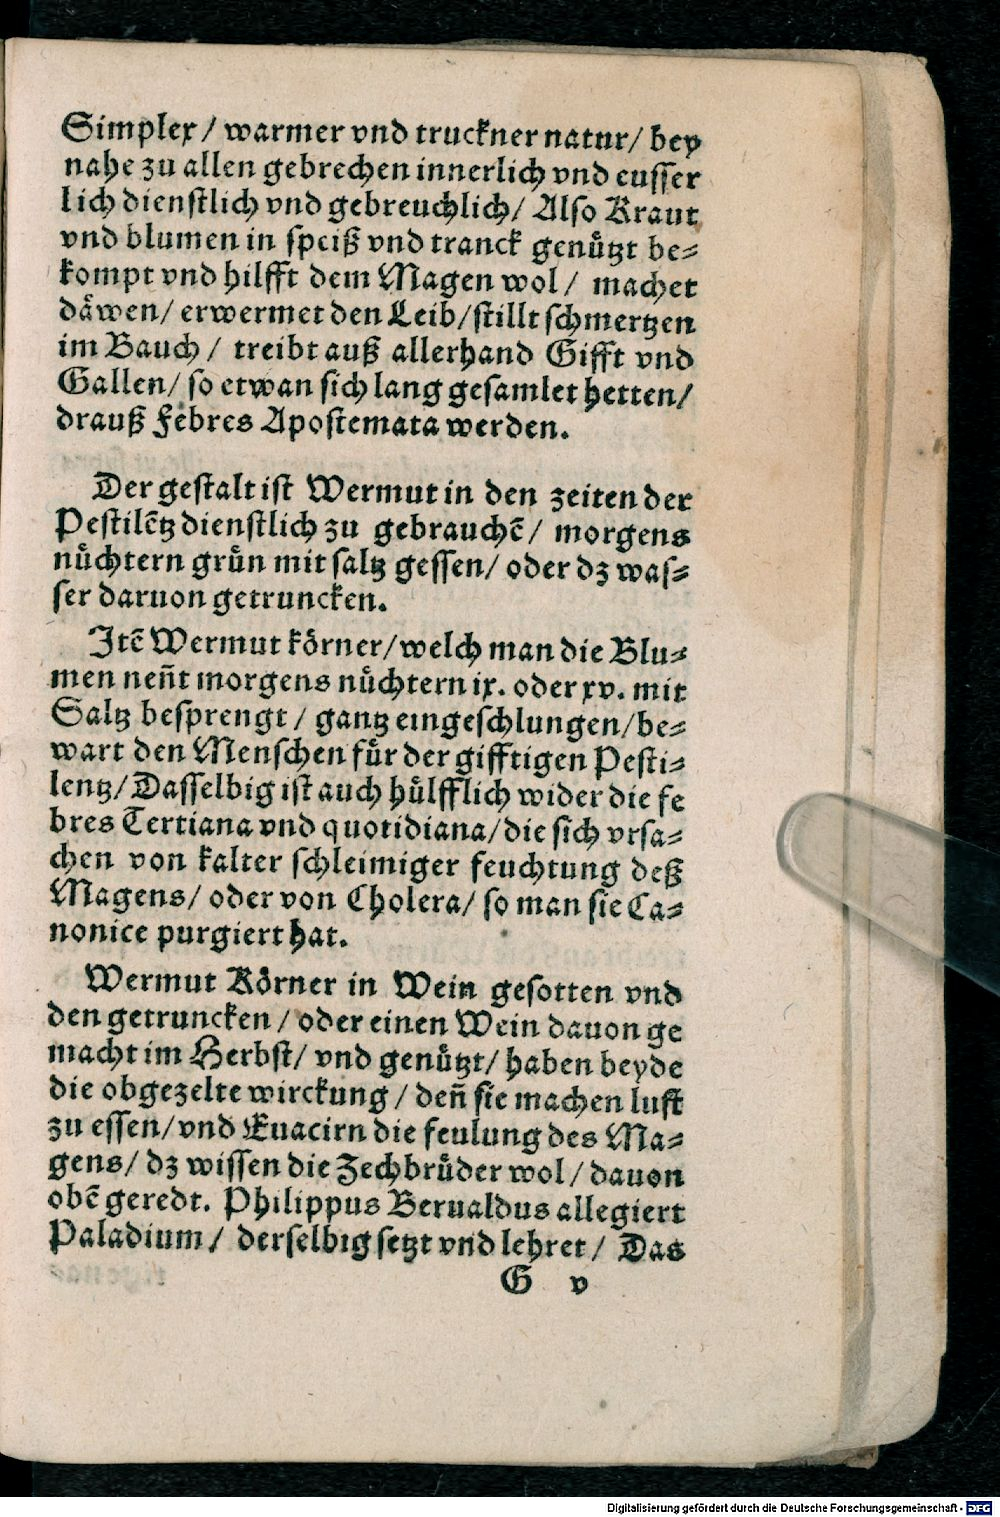 Simplex / warmer vnd truckner natur / bey
nahe zu allen gebrechen innerlich vnd eusser
lich dienstlich vnd gebreuchlich / Also Kraut
vnd blumen in speiß vnd tranck genuͤtzt be⸗
kompt vnd hilfft dem Magen wol / machet
daͤwen / erwermet den Leib / stillt schmertzen
im Bauch / treibt auß allerhand Gifft vnd
Gallen / so etwan sich lang gesamlet hetten /
drauß Febres Apostemata werden.
Der gestalt ist Wermut in den zeiten der
Pestilẽtz dienstlich zu gebrauchẽ / morgens
nuͤchtern gruͤn mit saltz gessen / oder dz was⸗
ser daruon getruncken.
Itẽ Wermut koͤrner / welch man die Blu⸗
men neñt morgens nuͤchtern ix. oder xv. mit
Saltz besprengt / gantz eingeschlungen / be⸗
wart den Menschen fuͤr der gifftigen Pesti⸗
lentz / Dasselbig ist auch huͤlfflich wider die fe
bres Tertiana vnd quotidiana / die sich vrsa⸗
chen von kalter schleimiger feuchtung deß
Magens / oder von Cholera / so man sie Ca⸗
nonice purgiert hat.
Wermut Koͤrner in Wein gesotten vnd
den getruncken / oder einen Wein dauon ge
macht im Herbst / vnd genuͤtzt / haben beyde
die obgezelte wirckung / deñ sie machen luft
zu essen / vnd Euacirn die feulung des Ma⸗
gens / dz wissen die Zechbruͤder wol / dauon
obẽ geredt. Philippus Berualdus allegiert
Paladium / derselbig setzt vnd lehret / Das
G v
Digitalisierung gefördert durch die Deutsche Forschungsgemeinschaft - DFG